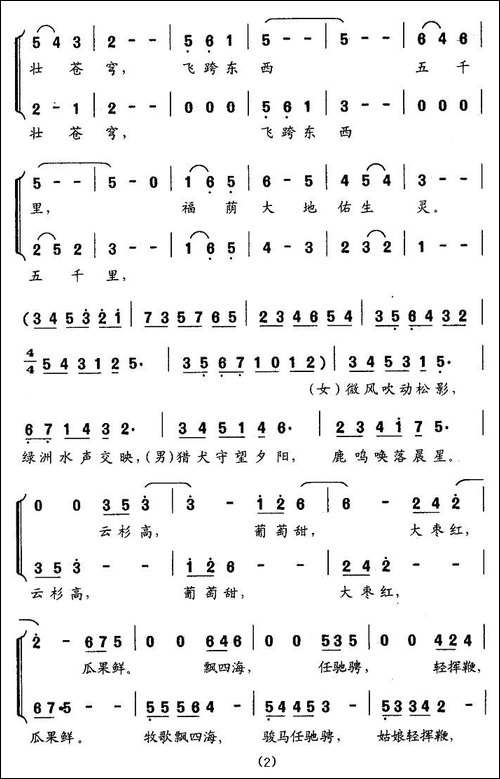 5 4 3 | 2 - - | 5 6 1 | 5 - - | 5 - - | 6 4 6 |
壮 苍 穹， 飞 跨 东 西 五 千
2 - 1 | 2 - - | 0 0 0 | 5 6 1 | 3 - - | 0 0 0 |
壮 苍 穹， 飞 跨 东 西
5 - - | 5 - 0 | 1 6 5 | 6 - 5 | 4 5 4 | 3 - - |
里， 福 荫 大 地 佑 生 灵。
2 5 2 | 3 - - | 1 6 5 | 4 - 3 | 2 3 2 | 1 - - |
五 千 里，
(3 4 5 3 2 1 | 7 3 5 7 6 5 | 2 3 4 6 5 4 | 3 5 6 4 3 2 |
4/4 5 4 3 1 2 5· | 3 5 6 7 1 0 1 2) | 3 4 5 3 1 5· |
(女)微风吹动松影，
6 7 1 4 3 2· | 3 4 5 1 4 6· | 2 3 4 1 7 5· |
绿洲水声交映，(男)猎犬守望夕阳， 鹿鸣唤落晨星。
0 0 3 5 3 | 3 - 1 2 6 | 6 - 2 4 2 |
云杉高， 葡萄甜， 大枣红，
3 5 3 - - | 1 2 6 - - | 2 4 2 - - |
云杉高， 葡萄甜， 大枣红，
2 - 6 7 5 | 0 0 6 4 6 | 0 0 5 3 5 | 0 0 4 2 4 |
瓜果鲜。 飘四海， 任驰骋， 轻挥鞭，
6 7·5 - - | 5 5 5 6 4 - | 5 4 4 5 3 - | 5 3 3 4 2 - |
瓜果鲜。 牧歌飘四海， 骏马任驰骋， 姑娘轻挥鞭，
(2)